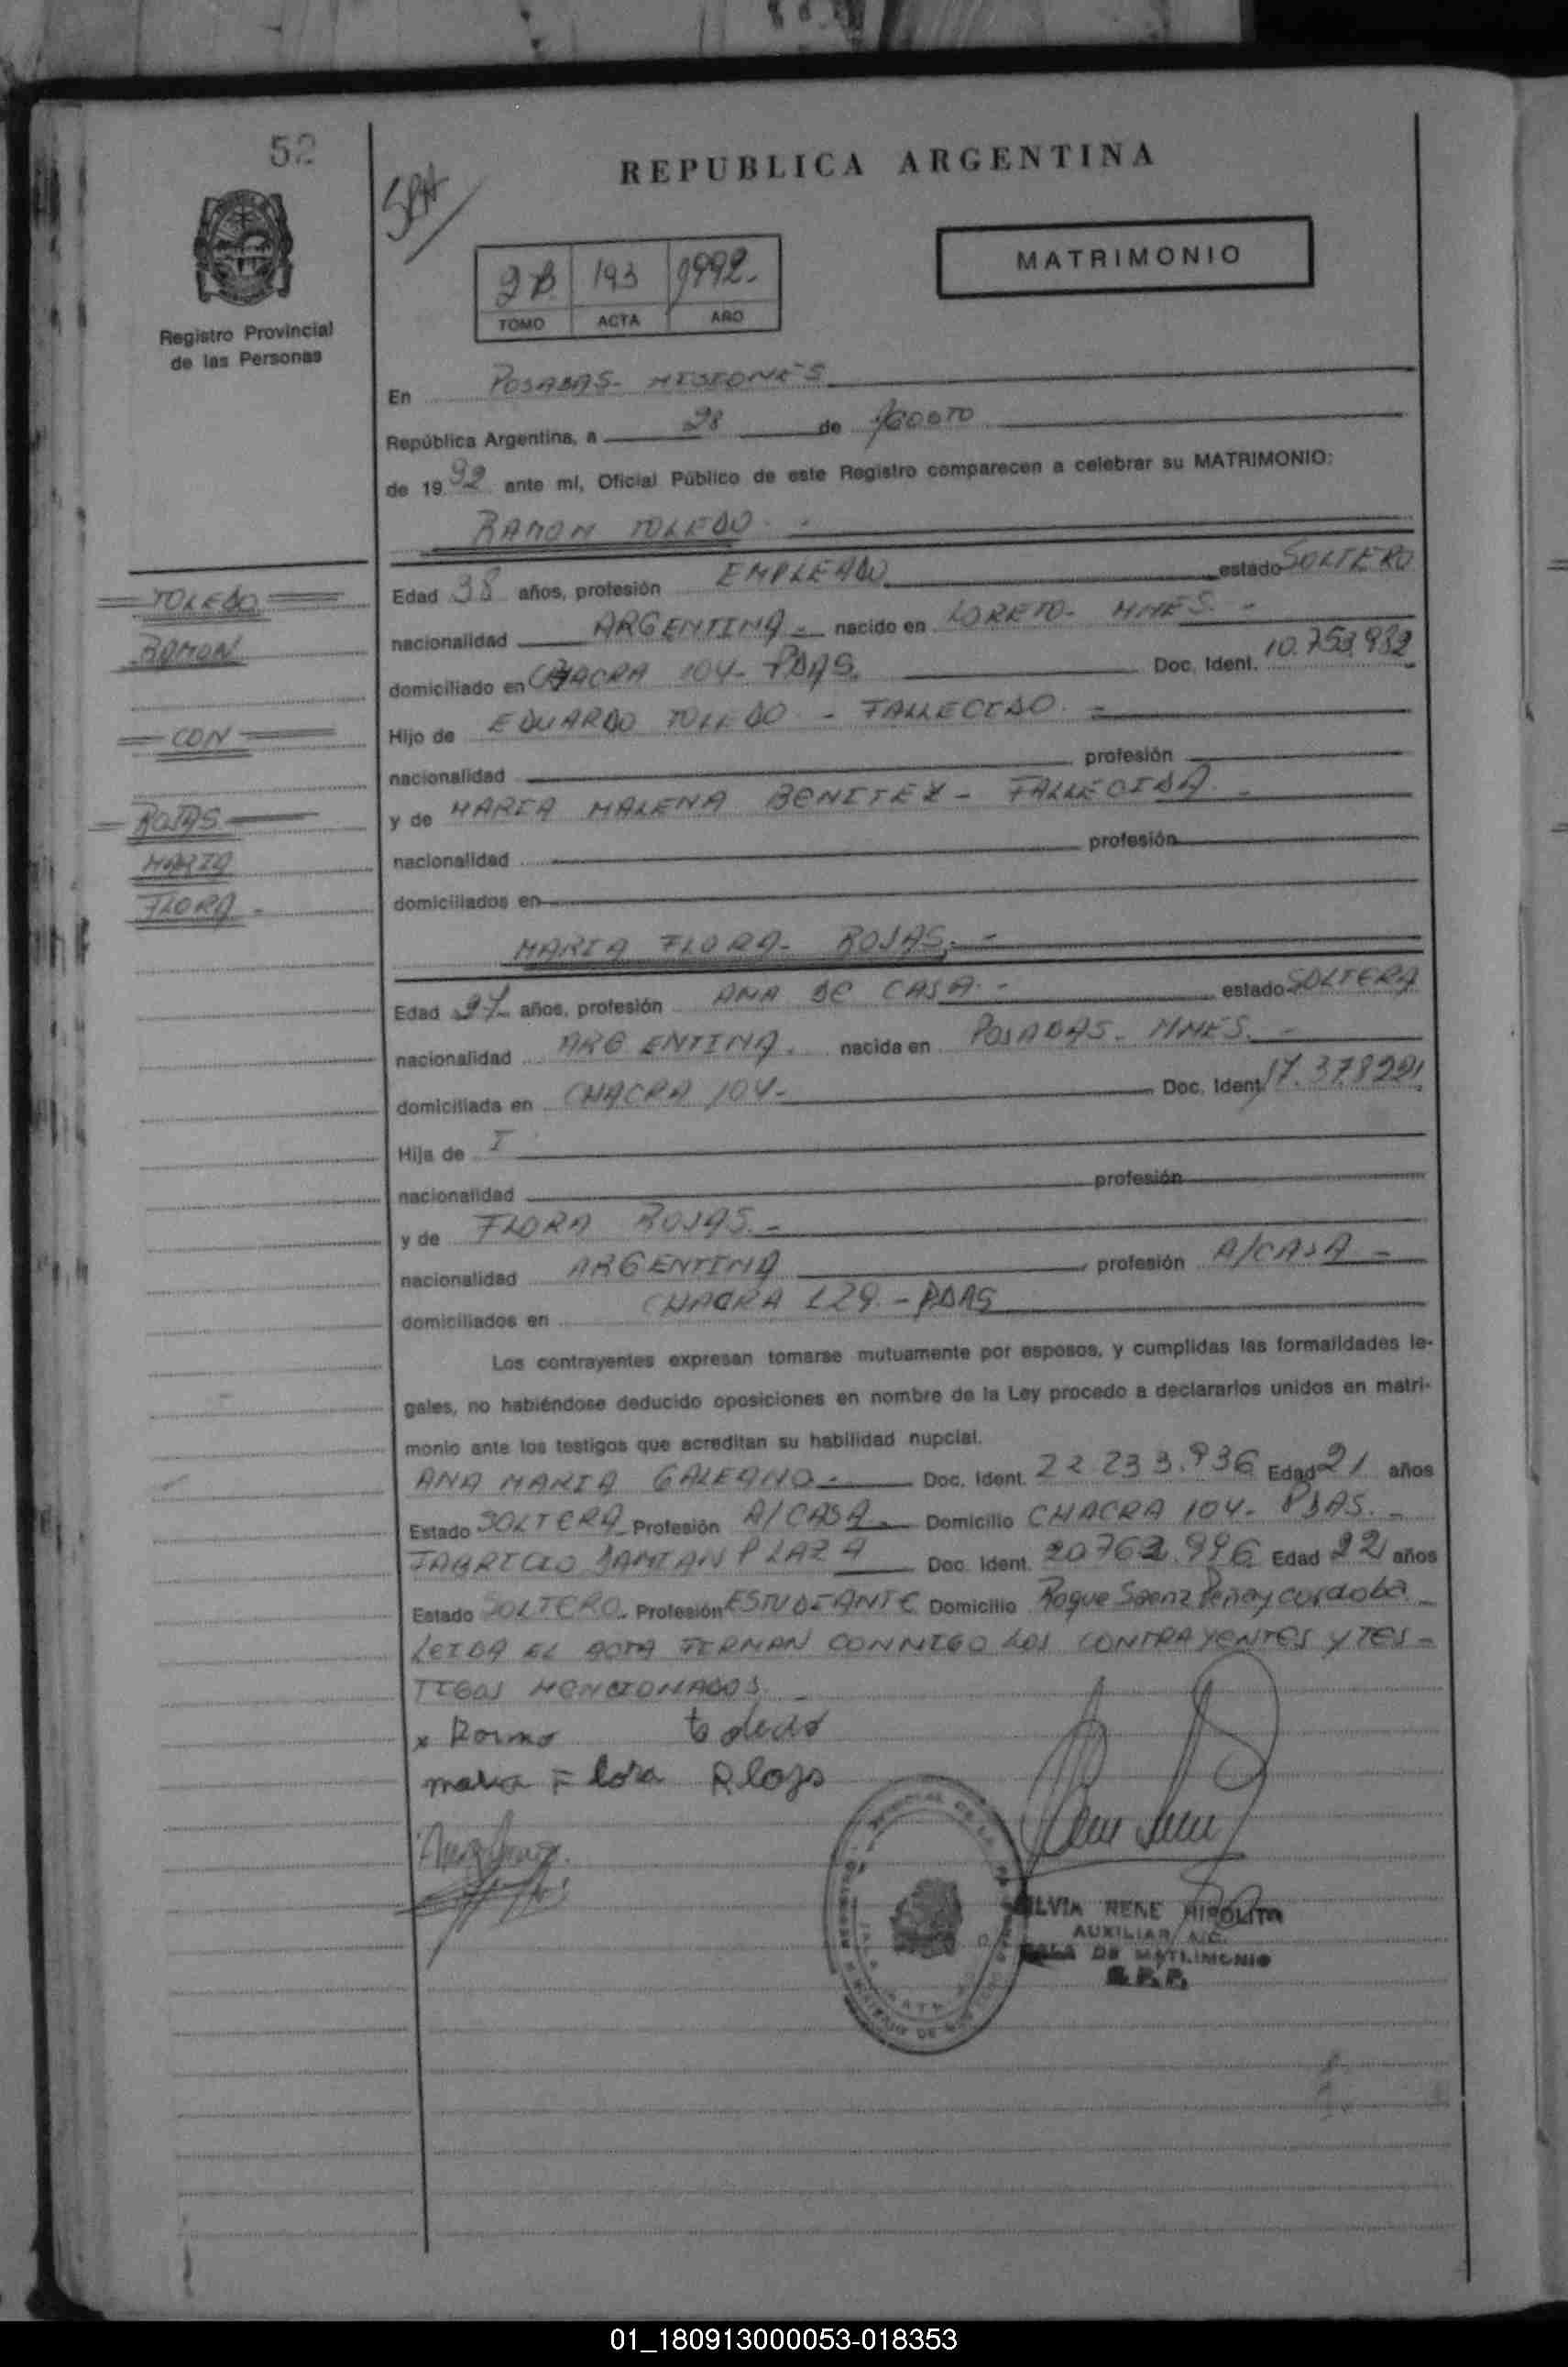 52
Registro Provincial
de las Personas
REPUBLICA ARGENTINA
MATRIMONIO
2B 193 1992.-
TOMO ACTA AÑO
En POSADAS- MISIONES
República Argentina, a 28 de AGOSTO
de 1992 ante mí, Oficial Público de este Registro comparecen a celebrar su MATRIMONIO:
RAMON TOLEDO.-
TOLEDO
RAMON
CON
ROJAS
MARIA
FLORA -
Edad 38 años, profesión EMPLEADO estado SOLTERO
nacionalidad ARGENTINA.- nacido en LORETO- MNES.-
domiciliado en CHACRA 104- PDAS. Doc. Ident. 10.753.932
Hijo de EDUARDO TOLEDO - FALLECIDO.-
nacionalidad profesión
y de MARIA MALENA BENITEZ - FALLECIDA.-
nacionalidad profesión
domiciliados en
MARIA FLORA- ROJAS.-
Edad 27 años, profesión AMA DE CASA.- estado SOLTERA
nacionalidad ARGENTINA. nacida en POSADAS- MNES.-
domiciliada en CHACRA 104- Doc. Ident. 17.378221
Hija de I
nacionalidad profesión
y de FLORA ROJAS.-
nacionalidad ARGENTINA profesión A/CASA -
domiciliados en CHACRA 129.- PDAS
Los contrayentes expresan tomarse mutuamente por esposos, y cumplidas las formalidades le-
gales, no habiéndose deducido oposiciones en nombre de la Ley procedo a declararlos unidos en matri-
monio ante los testigos que acreditan su habilidad nupcial.
ANA MARIA GALEANO.- Doc. Ident. 22 233.936 Edad 21 años
Estado SOLTERA Profesión A/CASA.- Domicilio CHACRA 104- PDAS.-
FABRICIO DAMIAN PLAZA Doc. Ident. 20762.996 Edad 22 años
Estado SOLTERO. Profesión ESTUDIANTE Domicilio Roque Saenz Peña y cordoba.-
LEIDA EL ACTA FIRMAN CONMIGO LOS CONTRAYENTES Y TES-
TIGOS MENCIONADOS.-
x Ramo toledo
maria Flora Rlojs
SILVIA RENE HIPOLITO
AUXILIAR A/C.
SALA DE MATRIMONIO
R.P.P.
01_180913000053-018353